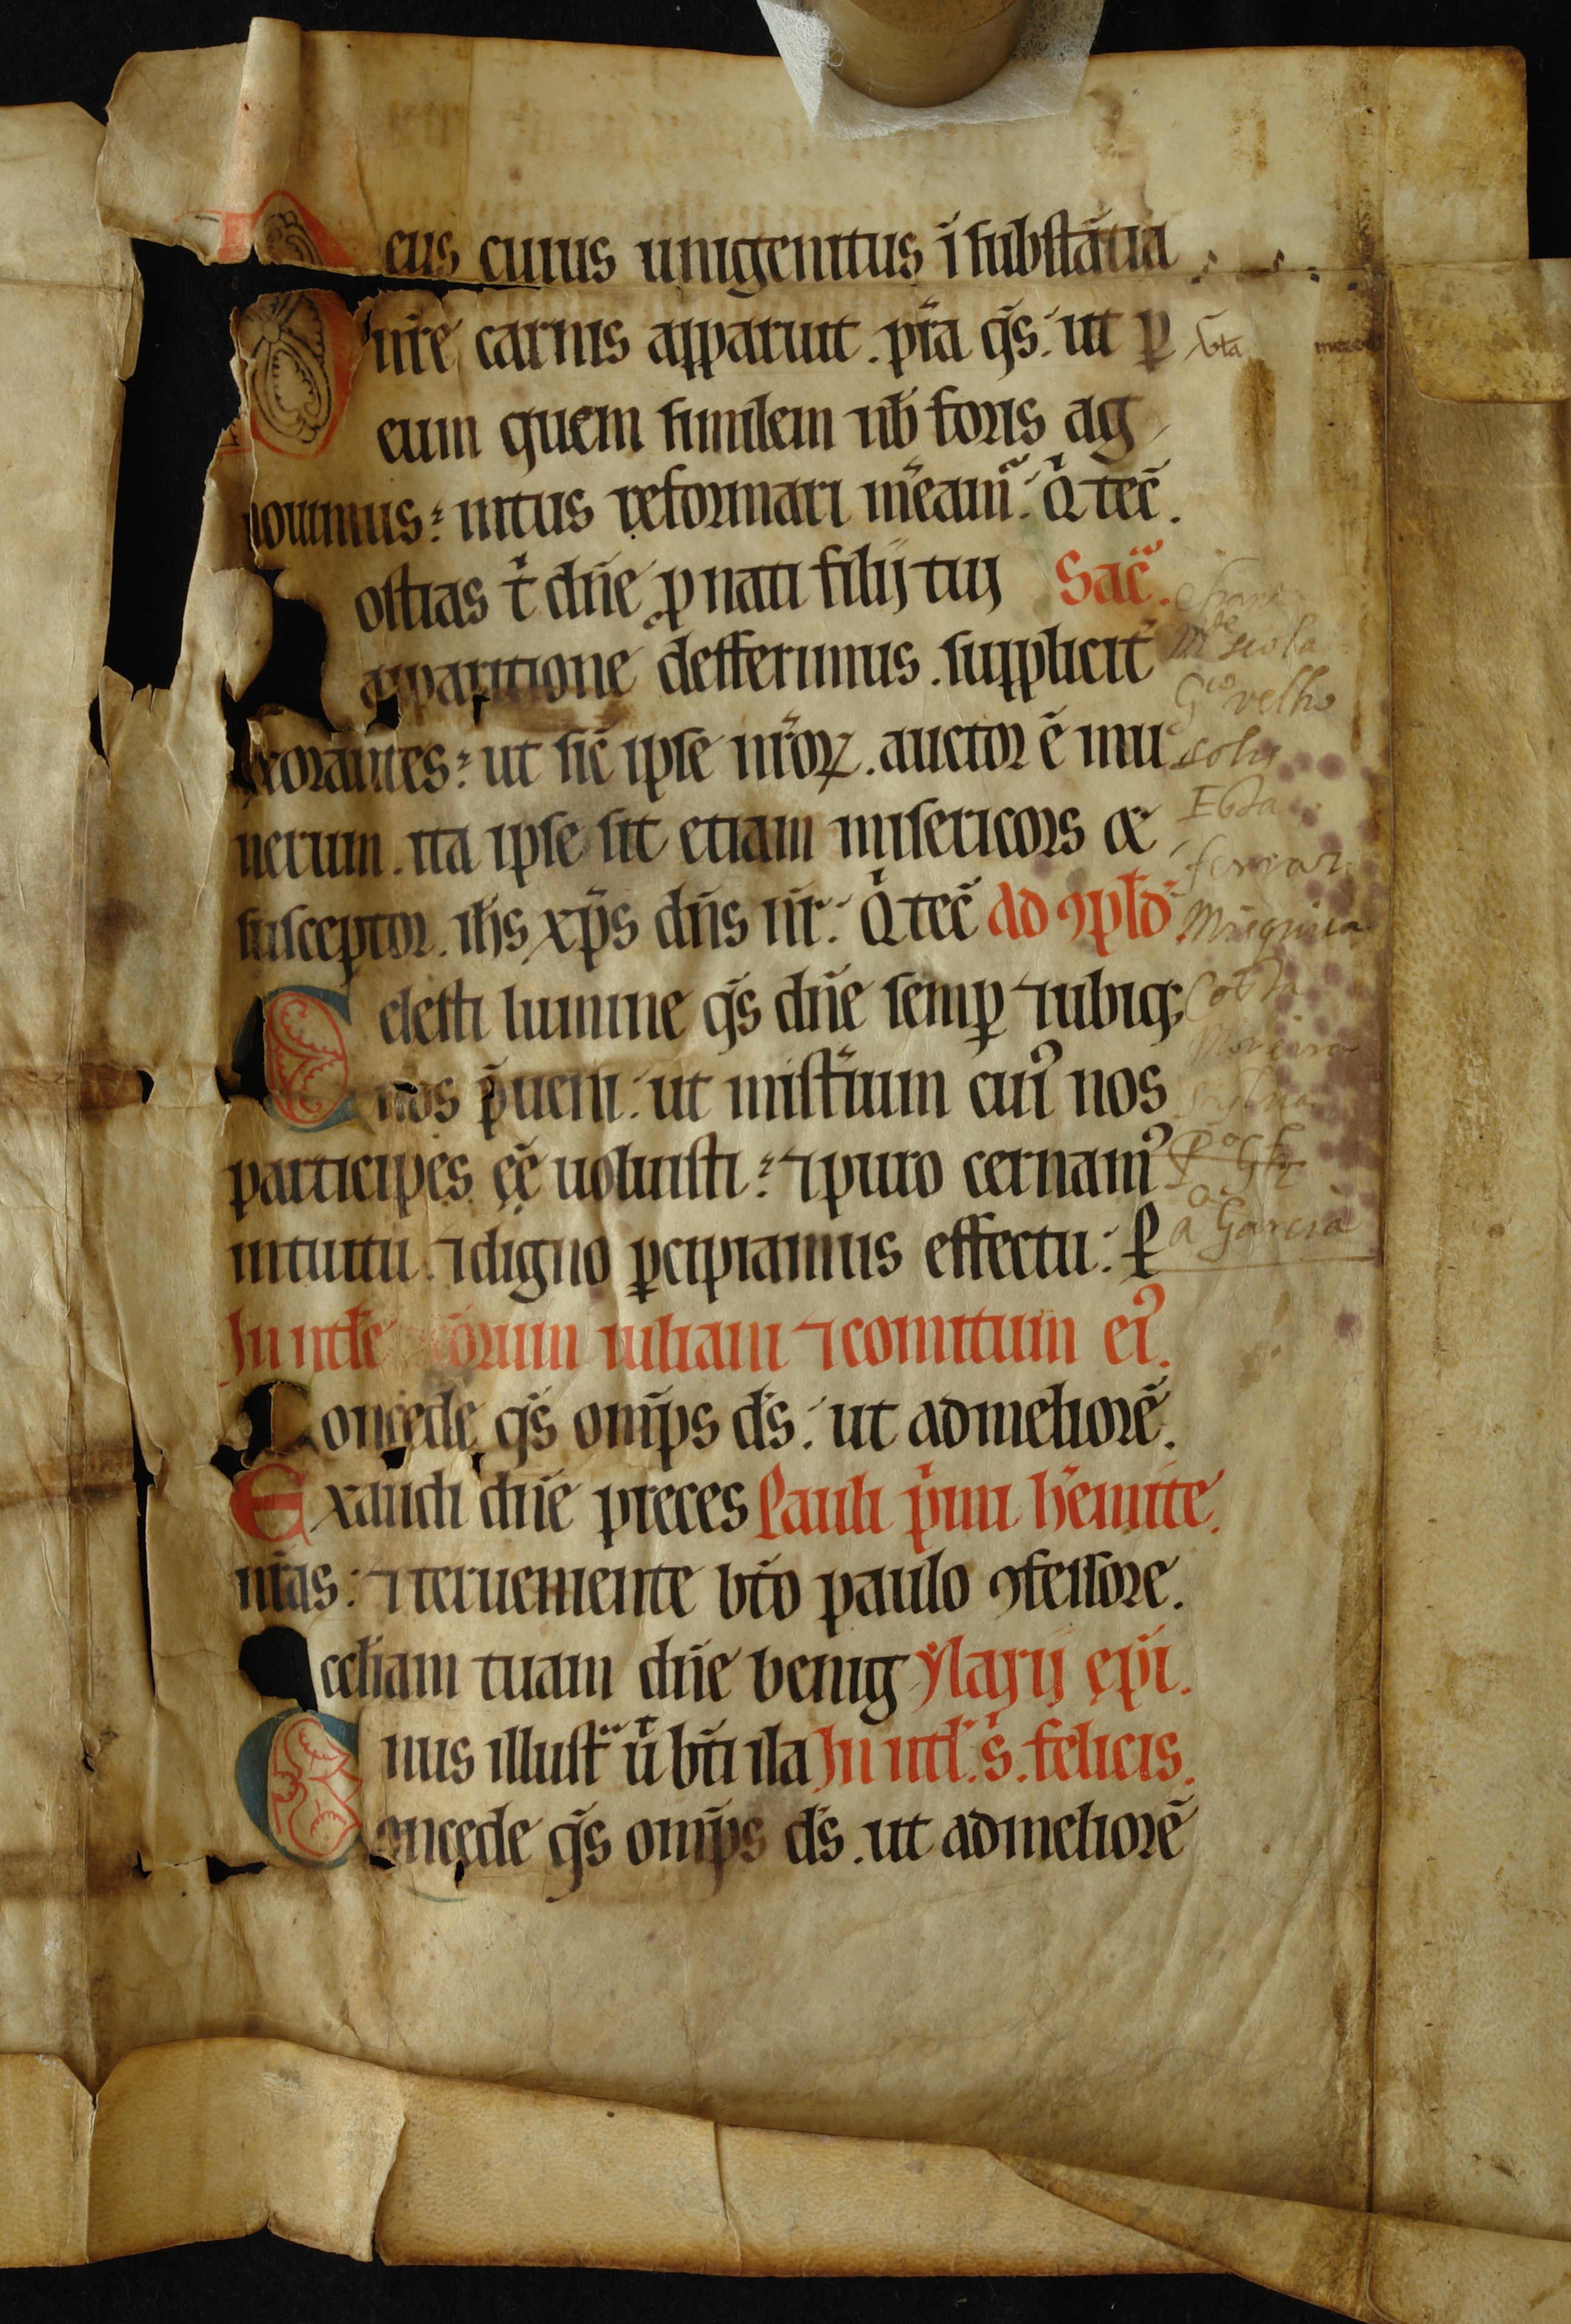 eus cuius unigenitus ī substātia
nr̄e carnis apparuit. pr̄a qs̄. ut ꝑ
eum quem similem nb̄ foris ag
nouimus: intus reformari m̄eam̄. Q̇ tec̄.
ostias t̄ dn̄e ꝓ nati filij tuj Sac̄.
apparitione defferimus. suppliciť
exorantes: ut sic̄ ipse nr̄oꝝ. auctor ē mu
nerum. ita ipse sit etiam misericors ⁊
susceptor. ih̄s xp̄s dn̄s nr̄. Q̇ tec̄ Ad ꝯpl̄d.
C elesti lumine qs̄ dn̄e semꝑ ⁊ ubiqꝫ
nos p̄ueni. ut mist̄ium cui᾽ nos
participes eē uoluisti: ⁊ puro cernam᾽
intuitu. ⁊ digno ꝑcipiamus effectu. Ꝑ
In ntl̄e s̄c̄orum iuliani ⁊ comitum ei᾽.
Concede qs̄ omp̄s ds̄. ut ad meliorē.
Exaudi dn̄e preces Pauli ṗmi h̄emite.
nr̄as. ⁊ ĩterueniente bt̄o paulo ꝯfessore.
ccl̄iam tuam dn̄e benig ylarij ep̄i.
nus illust̄ u̇ bt̄i ila In ntl̄. s̄. felicis.
Concede qs̄ omp̄s ds̄. ut ad meliorē
bta
Gco velho
solis
Cotta
Moreira
a Garcia